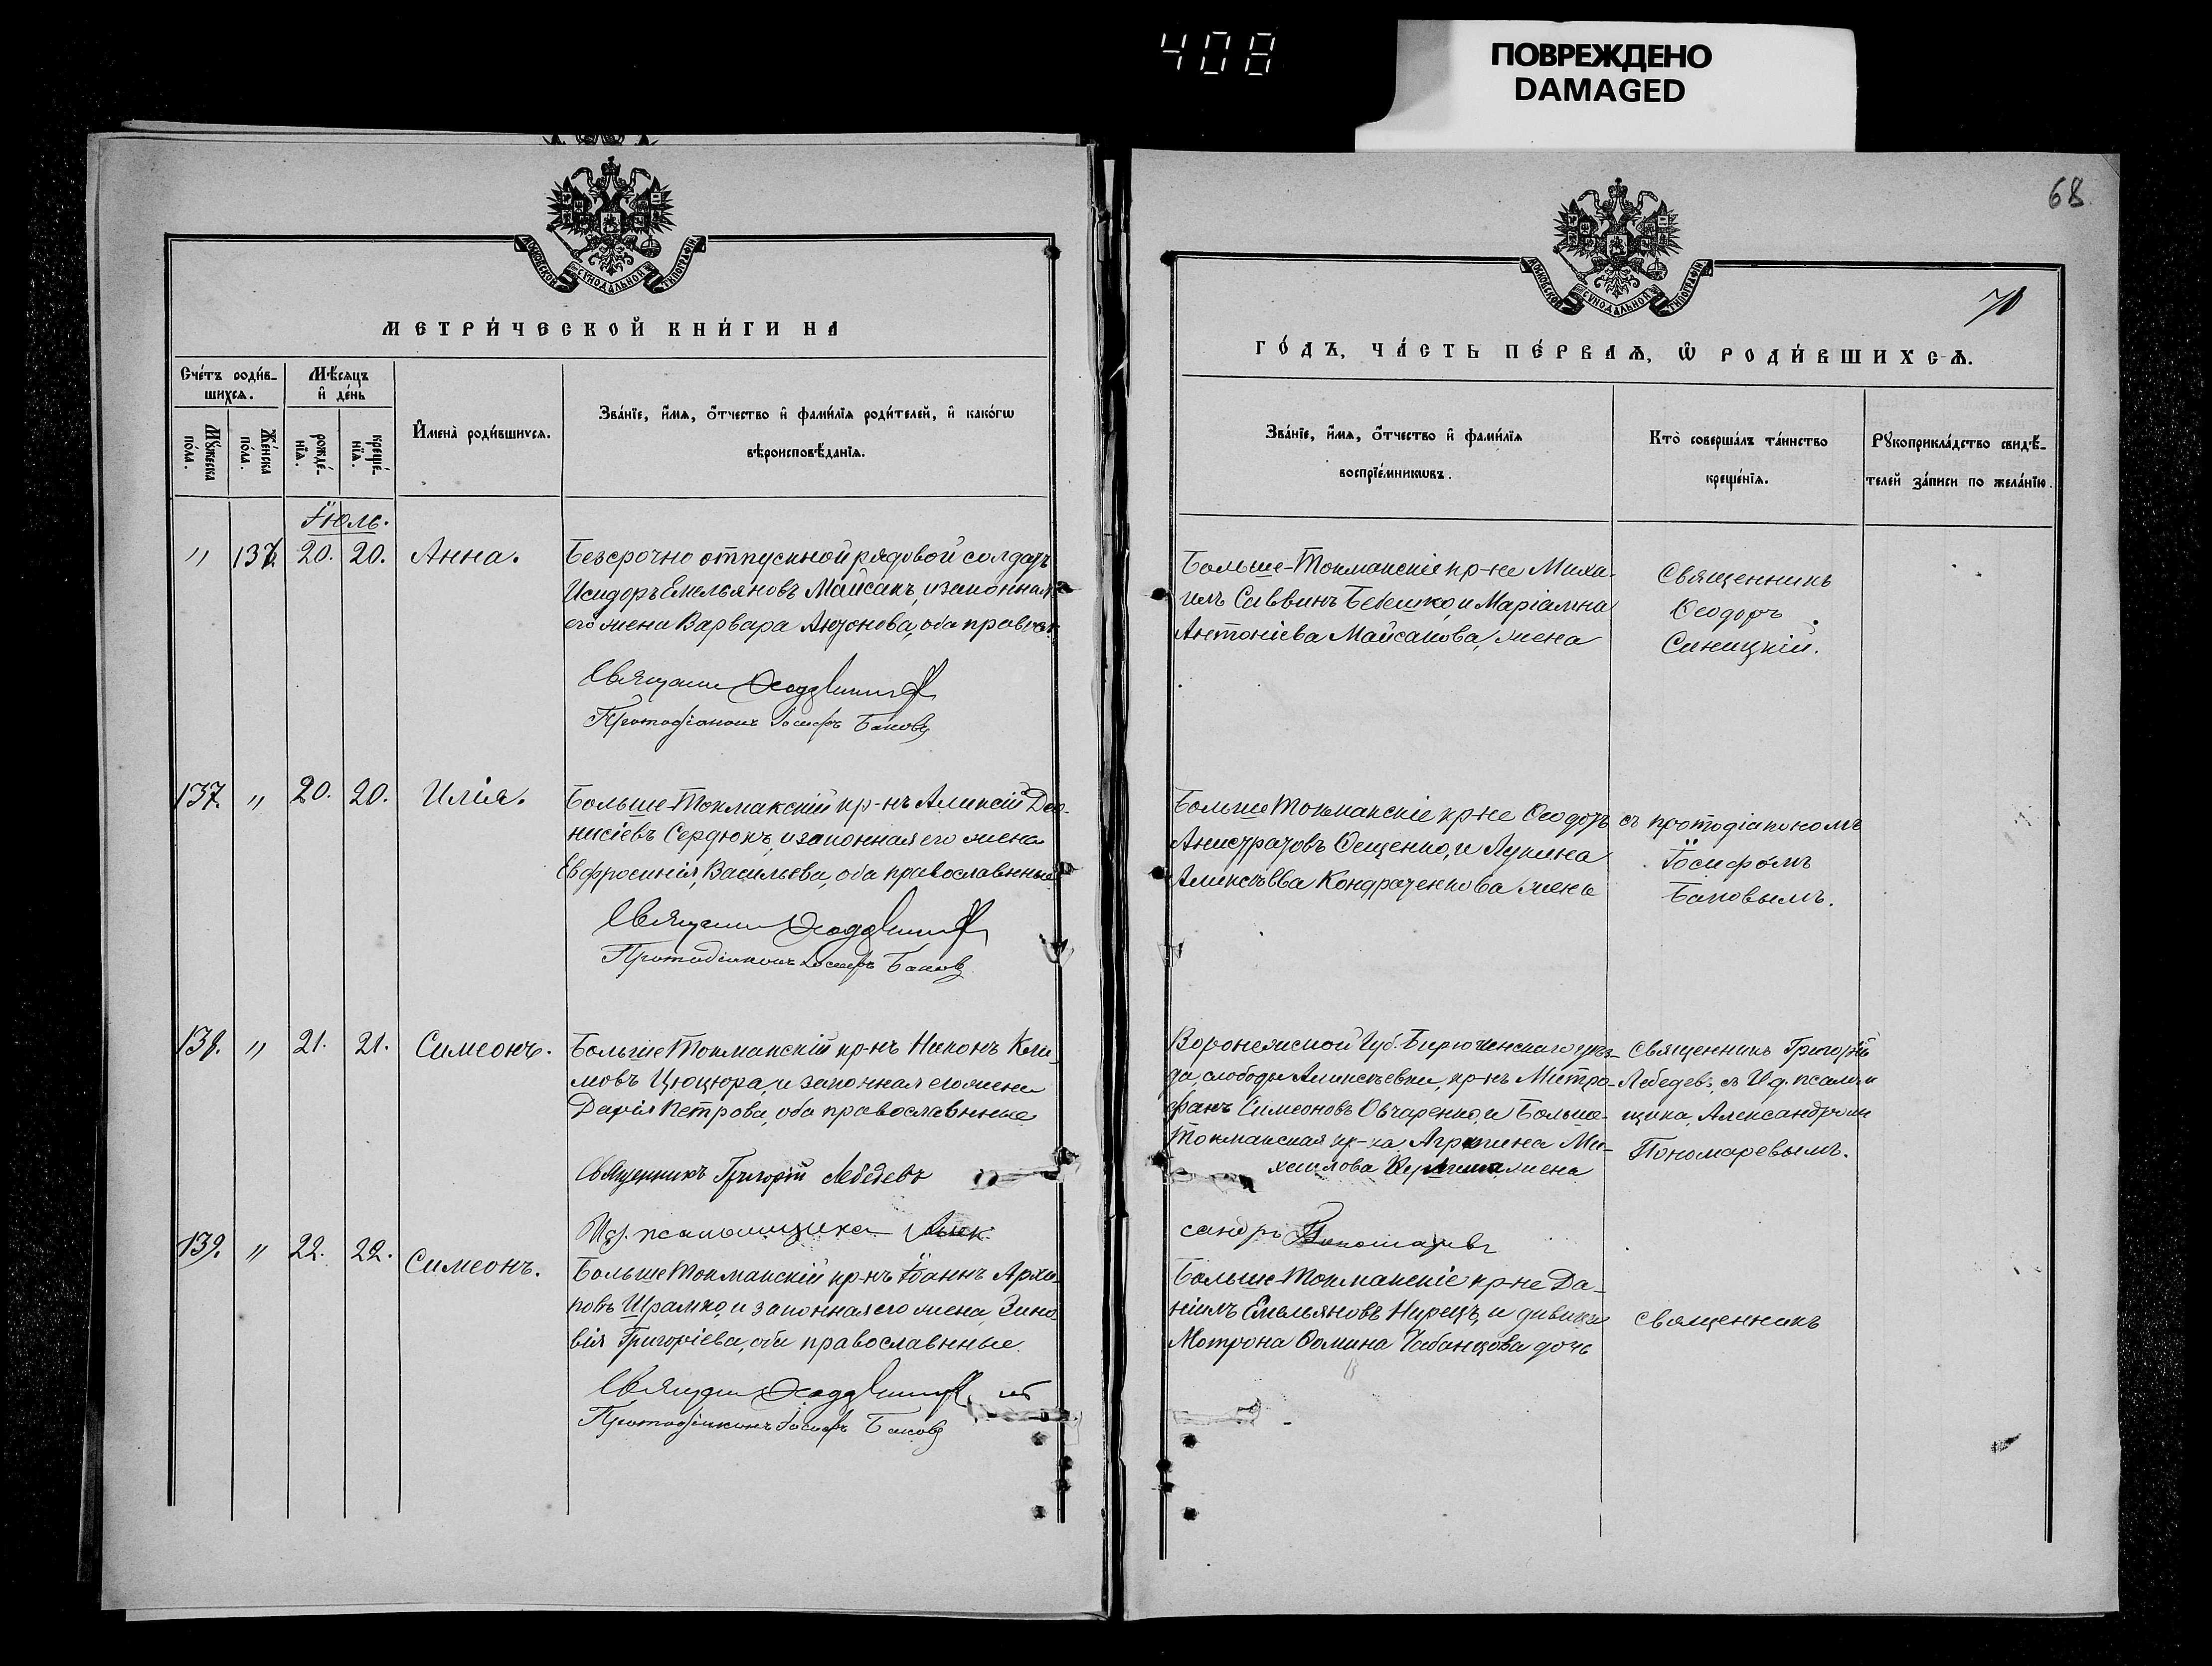 408
ПОВРЕЖДЕНО
DAMAGED
68
МОСКОВСКОЙ СѴНОДАЛЬНОЙ ТИПОГРАФІИ
МЕТРИ́ЧЕСКОЙ КНИ́ГИ НА
Сче́тъ роди́в-
шихсѧ.
Мꙋ́жеска
по́ла.
Же́нска
по́ла.
Мѣ́сѧцъ
и҆ де́нь
рожде́-
нїѧ.
креще́-
нїѧ.
И҆мена̀ роди́вшихсѧ.
Зва́нїе, и҆́мѧ, ѻ҆́тчество и҆ фами́лїѧ роди́телей, и҆ како́гѡ
вѣроисповѣ́данїѧ.
Іюль.
" 136. 20. 20. Анна.
Безсрочно отпускной рядовой солдатъ
Исидоръ Емельяновъ Майсакъ, и законная
его жена Варвара Антонова, оба правосл
Священникъ
Протодіаконъ Іосифъ Баковъ
137. " 20. 20. Илія.
Больше-Токмакскій кр-нъ Алексій Діо-
нисіевъ Сердюкъ, и законная его жена
Евфросинія Васильева, оба православные
Священникъ
Протодіаконъ Іосифъ Баковъ
138. " 21. 21. Симеонъ.
Больше Токмакскій кр-нъ Никонъ Кли-
мовъ Цюцюра, и законная его жена
Дарія Петрова, оба православные
Священникъ Григорій Лебедевъ
Ид. псаломщика Алек-
139. " 22. 22. Симеонъ.
Больше Токмакскій кр-нъ Іоаннъ Архи-
повъ Шрамко, и законная его жена Зино-
вія Григоріева, оба православные
Священникъ
Протодіаконъ Іосифъ Баковъ
МОСКОВСКОЙ СѴНОДАЛЬНОЙ ТИПОГРАФІИ
ГО́ДЪ, ЧА́СТЬ ПЕ́РВАѦ, Ѡ҆ РОДИ́ВШИХСѦ.
Зва́нїе, и҆́мѧ, ѻ҆́тчество и҆ фами́лїѧ
воспрїе́мникѡвъ.
Кто̀ соверша́лъ та́инство
креще́нїѧ.
Рꙋкоприкла́дство свидѣ́-
телей за́писи по жела́нїю.
Больше-Токмакскіе кр-не Миха-
илъ Саввинъ Бебешко, и Маріамна
Антоніева Майсакова, жена
Священникъ
Ѳеодоръ
Синицкій.
Больше Токмакскіе кр-не Ѳеодоръ
Анистратовъ Ѳещенко, и Лукина
Алексѣева Кондратенкова жена
съ протодіакономъ
Іосифомъ
Баковымъ.
Воронежской Губ. Бирюченскаго уѣз-
да, слободы Алексѣевки, кр-нъ Митро-
фанъ Симеоновъ Овчаренко, и Больше-
Токмакская кр-ка Агрипина Ми-
хаилова жена
Священникъ Григорій
Лебедевъ, съ И. д. псалом-
щика, Александромъ
Пономаревымъ.
сандръ Пономаревъ
Больше-Токмакскіе кр-не Да-
ніилъ Емельяновъ Нирецъ, и дѣвица
Мотрона Ѳомина Чабанцова дочь
Священникъ